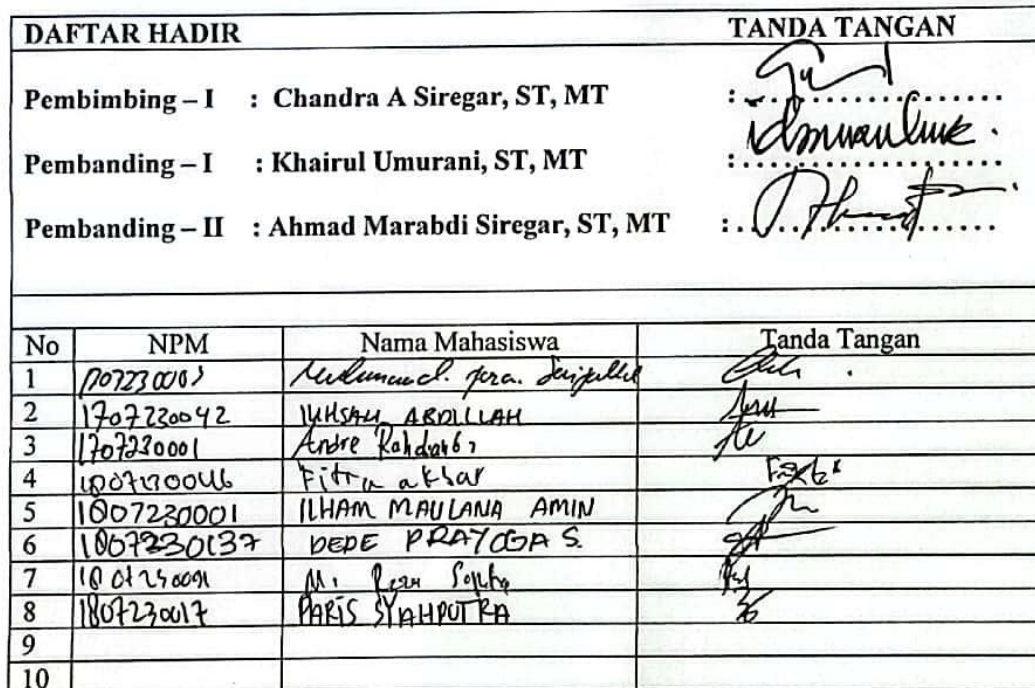 DAFTAR HADIR TANDA TANGAN
Pembimbing – I : Chandra A Siregar, ST, MT :
Pembanding – I : Khairul Umurani, ST, MT :
Pembanding – II : Ahmad Marabdi Siregar, ST, MT :
No NPM Nama Mahasiswa Tanda Tangan
1
2 1707230042 IKHSAN ABDILLAH
3 1707230001 Andre
4 Fitra akbar
5 1807230001 ILHAM MAULANA AMIN
6 1807230137 DEDE PRAYOGA S.
7 M.
8 1807230017 PARIS SYAHPUTRA
9
10